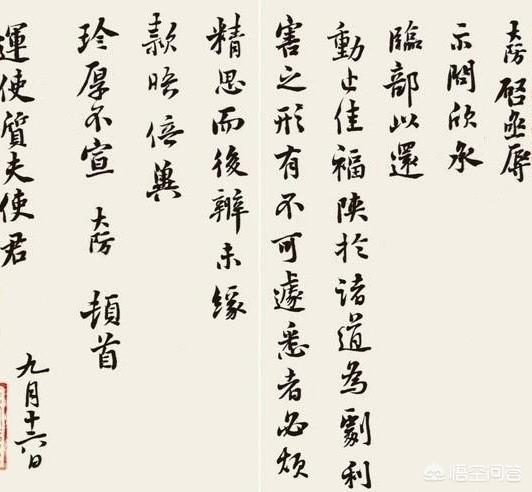 大防啓亟辱
示問欣承
臨部以還
動止佳福陝於諸道為劇利
害之形有不可遽悉者必煩
精思而後辦未緣
款晤倍冀
珍厚不宣 大防 頓首
運使質夫使君
九月十六日
悟空问答